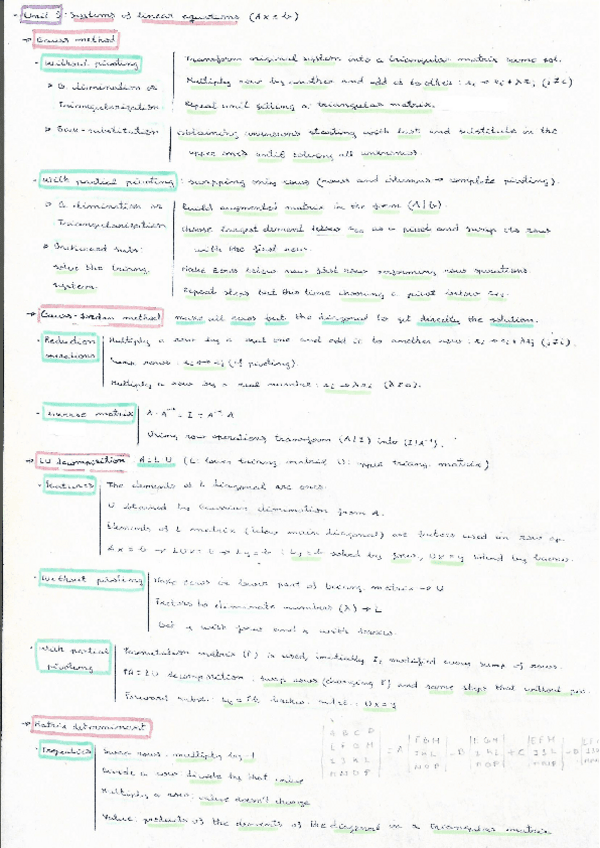 - Unit 3: Systems of linear equations (Ax = b)
→ Gauss method
· Without pivoting
Transform original system into a triangular matrix same sol.
> G. elimination or Triangularization
Multiply row by another and add it to other: (j≠i)
Repeat until getting a triangular matrix.
> Back-substitution
obtaining unknowns starting with last and substitute in the
upper ones until solving all unknowns.
· With partial pivoting: swapping only rows (rows and columns → complete pivoting).
> G. elimination or Triangularization
Build augmented matrix in the form (A|b).
choose largest element below as a pivot and swap its row
with the first row.
> Backward subs: solve the triang. system.
Make zeros below first row performing row operations.
Repeat steps but this time choosing a pivot below
→ Gauss-Jordan method make all zeros but the diagonal to get directly the solution.
· Reduction operations
Multiply a row by a real one and add it to another row: (j≠i).
Swap rows: (if pivoting).
Multiply a row by a real number: (λ≠0).
· Inverse matrix
A·A⁻¹ = I = A⁻¹·A
Using row operations transform (A|I) into (I|A⁻¹).
→ LU decomposition A = L·U (L: lower triang matrix U: upper triang. matrix)
· Features
The elements of L diagonal are ones.
U obtained by Gaussian elimination from A.
Elements of L matrix (below main diagonal) are factors used in row op.
Ax = b → LUx = b → Ly = b: Ly = b solved by forw, Ux = y solved by backw.
· Without pivoting
Make zeros in lower part of triang. matrix → U
Factors to eliminate numbers (λ) → L
Get y with forw and x with backw.
· With partial pivoting
Permutation matrix (P) is used, initially I, modified every swap of rows.
PA = LU decomposition: swap rows (changing P) and same steps that without piv.
Forward subst: Ly = Pb backw. subst.: Ux = y
→ Matrix determinant
A B C D
E F G H
I J K L
M N O P
· Properties
Swap rows: multiply by -1
Divide a row: divide by that value
Multiply a row: value doesn't change
Value: products of the elements of the diagonal in a triangular matrix